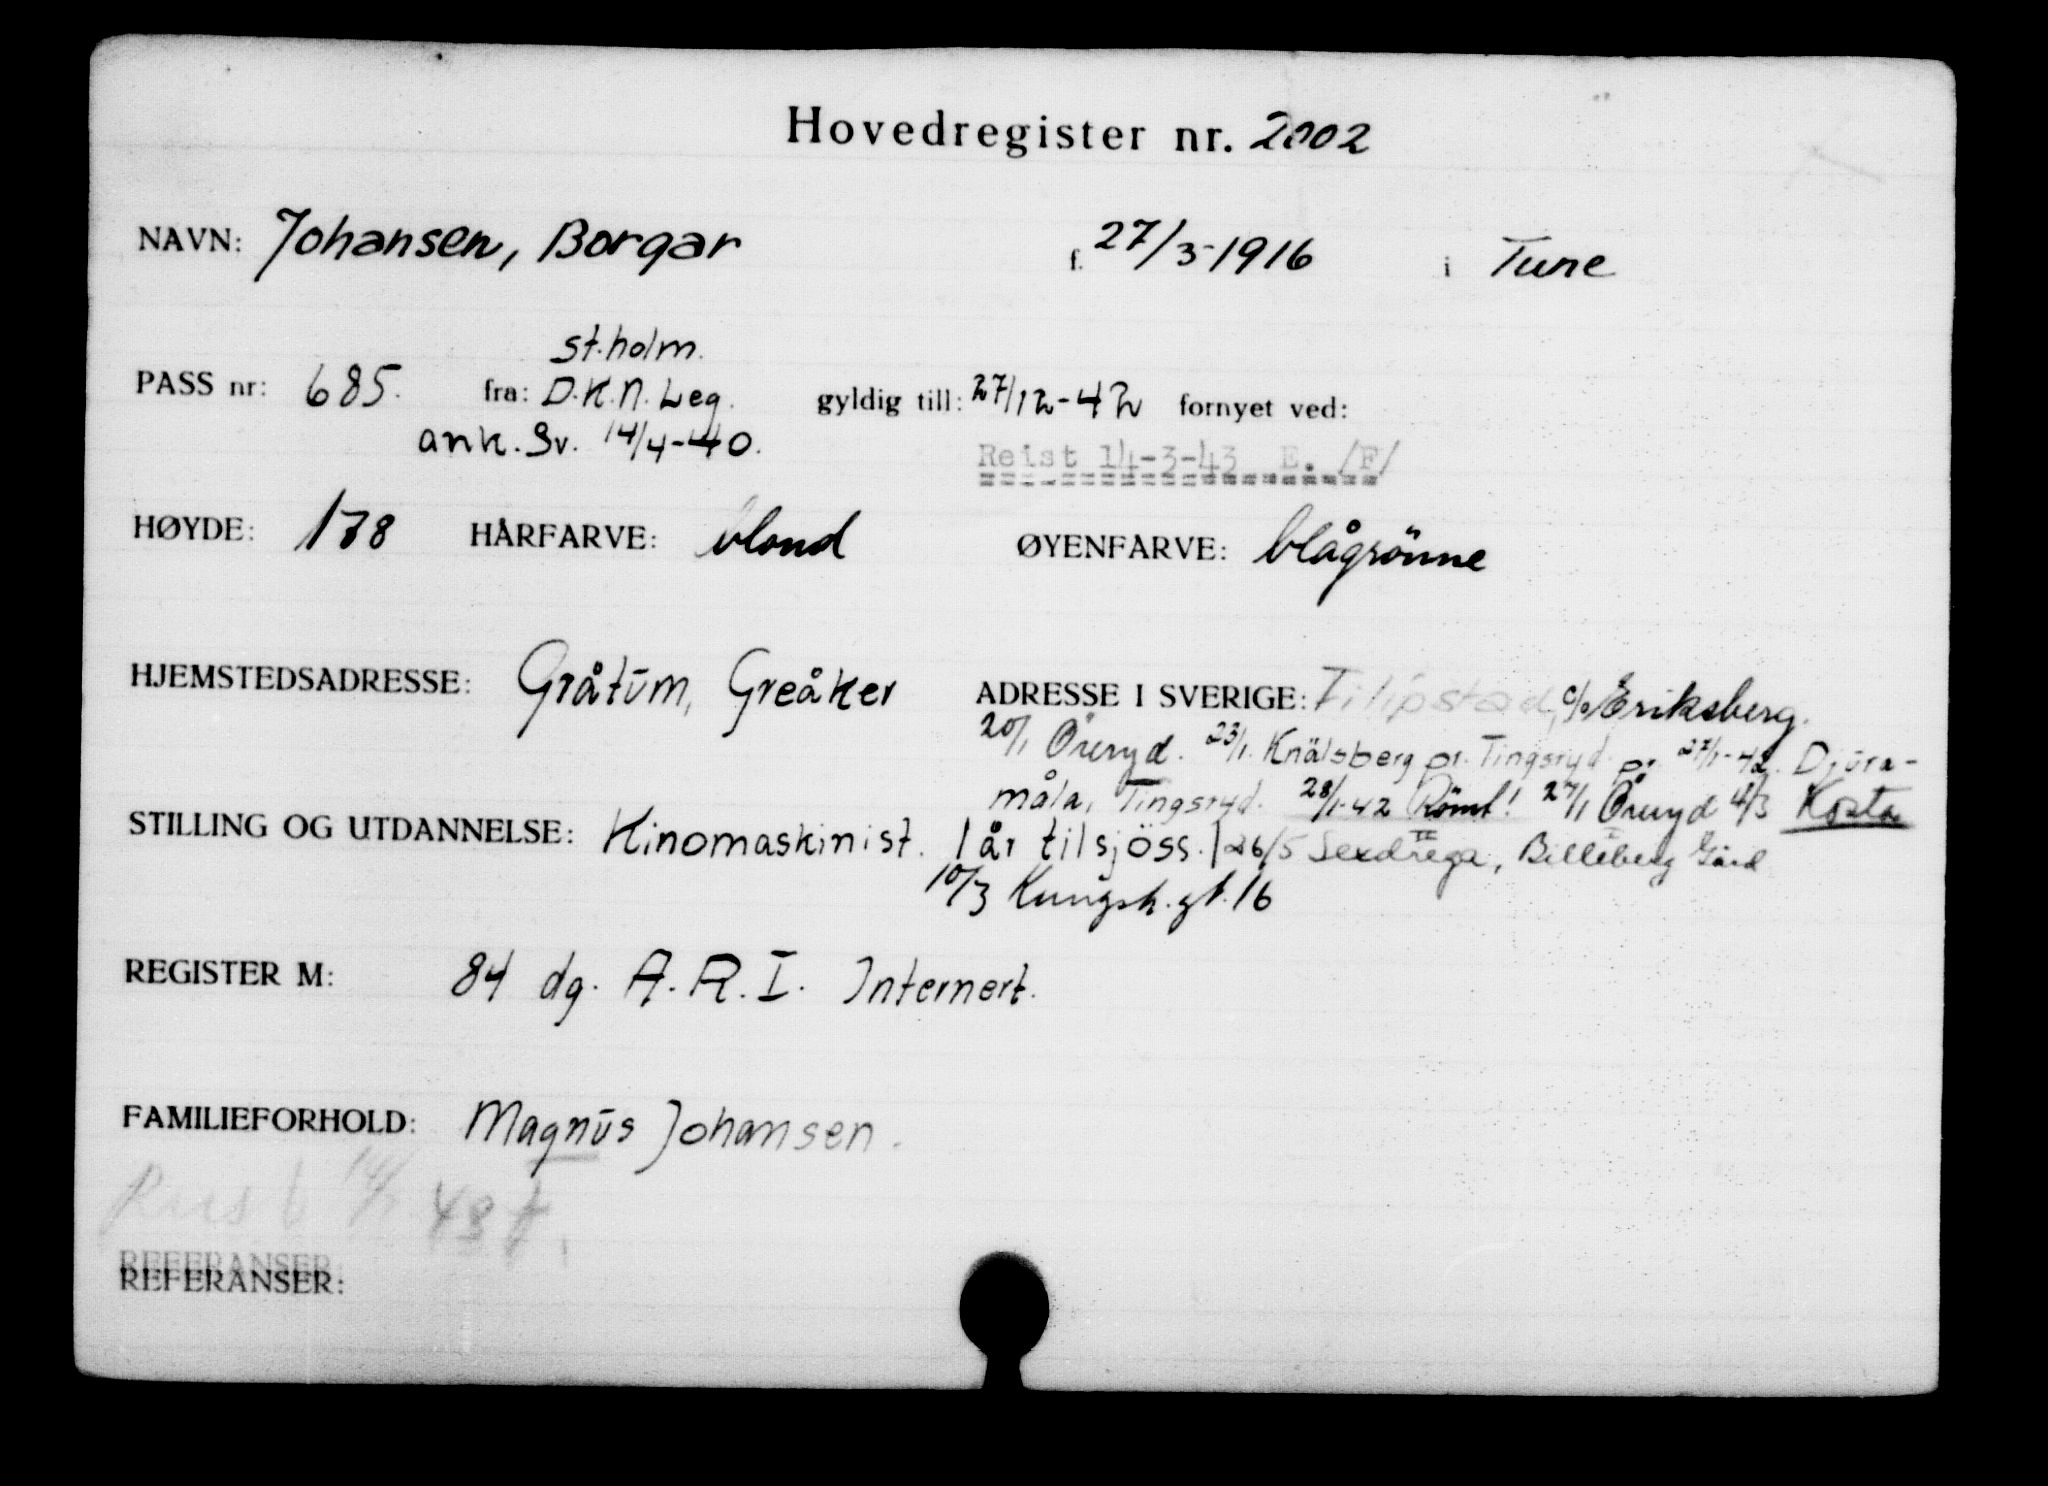 Hovedregister nr. 2002
NAVN: Johansen, Borgar f. 27/3-1916 i Tune
st.holm.
PASS nr: 685. fra: D.K.N. Leg. gyldig till: 27/12-42 fornyet ved:
ank. Sv. 14/4-40.
Reist 14-3-43 E. /F/
HØYDE: 178 HÅRFARVE: blond ØYENFARVE: blågrönne
HJEMSTEDSADRESSE: Gråtūm, Greåker ADRESSE I SVERIGE: Filipstad, c/o Eriksberg.
20/1 Öreryd. 23/1. Knälsberg pr. Tingsryd. pr. 27/1-42. Djūra-
måla, Tingsryd. 28/1-42 Römt! 27/1 Öreryd 4/3 Kosta
STILLING OG UTDANNELSE: Kinomaskinist. 1 år tilsjöss. 26/5 Sexdrega, Billeberg Gård
10/3 Kungsh.gt. 16
REGISTER M: 84 dg. A.R.I. Internert.
FAMILIEFORHOLD: Magnūs Johansen.
REFERANSER:
REFERANSER: